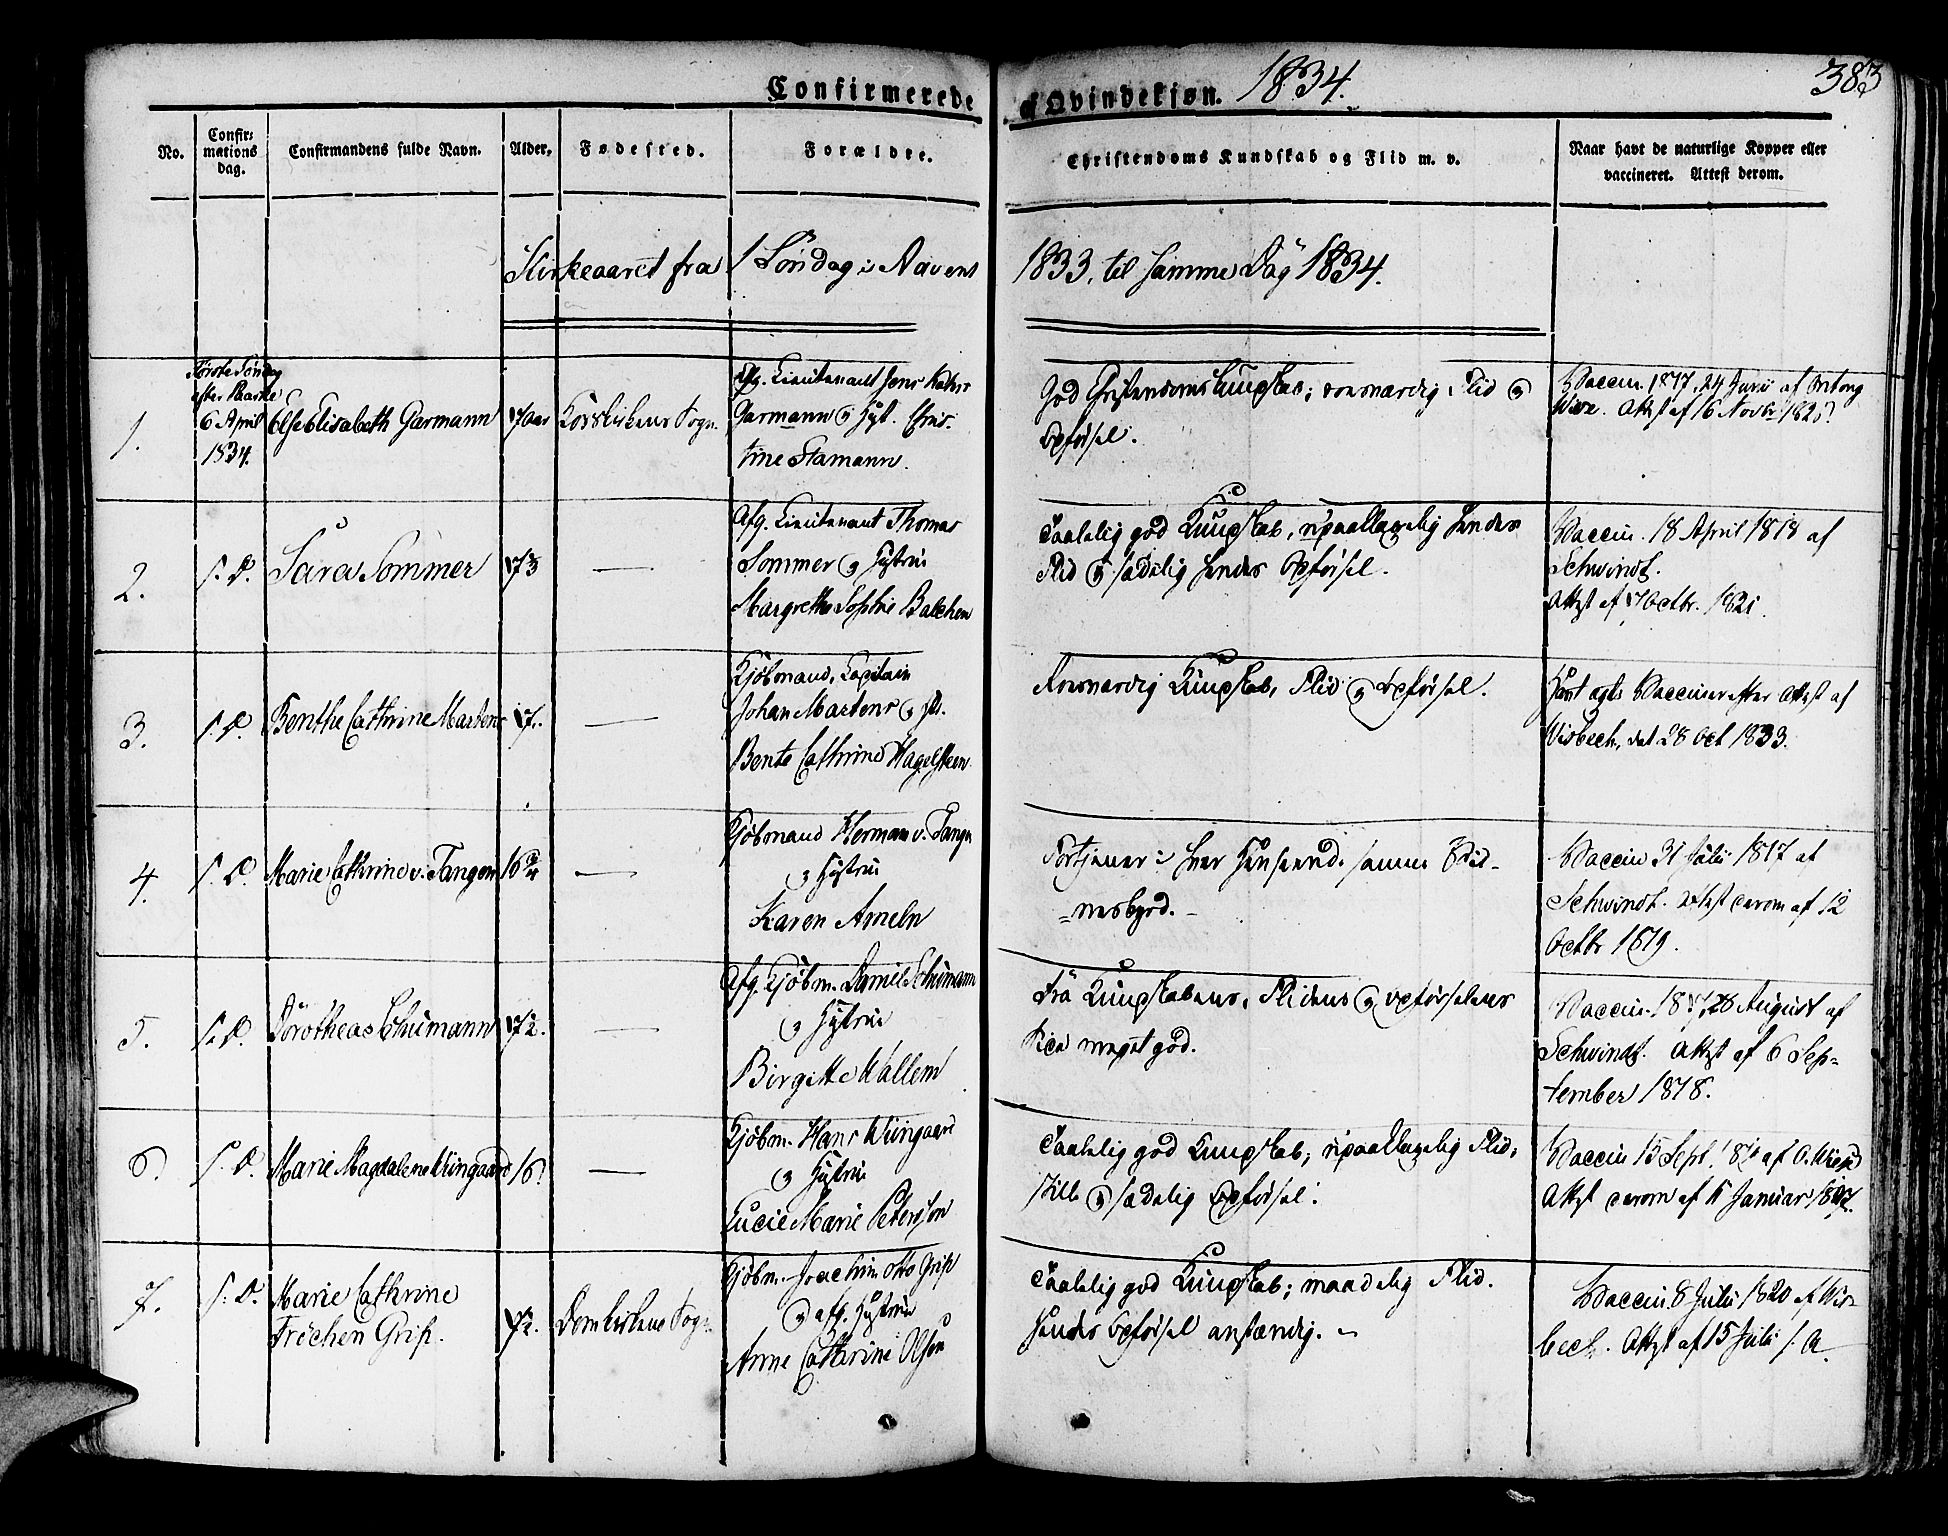 Confirmerede af Qvindekjøn. 1834. 383
No. Confirmations dag. Confirmandens fulde Navn. Alder, Fødested. Forældre. Christendoms Kundskab og Flid m. v. Naar havt de naturlige Kopper eller vaccineret. Attest derom.
Kirkeaaret fra 1 Søndag i Advent 1833, til samme Dag 1834.
1.
Første Søndag
efter Paaske
6 April
1834.
Else Elisabeth Garmann
17 Aar
Korskirkens Sogn.
Afg. Lieutenant Jens
Garmann og Hst.
tine Stamann.
God Christendomskundskab; roesværdig Flid og
Opførsel.
Vaccin. 1817, 24 Juni af
Wiese. Attest af 6 Novbr
2.
S. D.
Sara Sommer
17
—
Afg. Lieutenant Thomas
Sommer og Hustrue
Margrethe Sophie Balchen
Taalelig god Kundskab, upaaklagelig hendes
Flid og sædelig hendes Opførsel.
Vaccin. 18 April 1818 af
Schwindt.
Attest af 17 Octbr. 1821.
3.
S. D.
Benthe Cathrine Martens
17.
—
Kjøbmand, Capitain
Johan Martens og
Bente Cathrine Hagelsteen
Roesværdig Kundskab, Flid og Opførsel.
Havt ægte Vacciner efter Attest af
Wisbech, dat 28 Oct 1833.
4.
S. D.
Marie Cathrine v. Tangen
16¾
—
Kjøbmand Herman v. Tangen
og Hustrue
Karen Ameln
Fortjener i hver Henseende samme Vid-
nesbyrd.
Vaccin 31 Julii 1817 af
Schwindt. Attest derom af 12
Octbr 1819.
5.
S. D.
Dorothea Schumann
17½.
—
Afg. Kjøbm. Daniel Schumann
og Hustrue
Birgitte Wallem
Fra Kundskabens, Flidens og Opførselens
Side meget god.
Vaccin. 1817, 28 August af
Schwindt. Attest af 6 Sep-
tember 1818.
6
S. D.
Marie Magdalene Wiingaard
16
—
Kjøbm. Hans Wiingaard
og Hustrue
Lucie Marie Peterson
Taalelig god Kundskab; upaaklagelig Flid,
stille og sædelig Opførsel.
Vaccin 15 Sept. af
Attest derom af Januar
7.
S. D.
Marie Cathrine
Frechen Grip.
17½.
Domkirkens Sogn
Kjøbm. Joachim Otto Grip
og afg. Hustrue
Anne Cathrine Olsen
Taalelig god Kundskab; maadelig Flid.
Hendes Opførsel anstændig.
Vaccin 8 Julii 1820 af Wis-
bech. Attest af 15 Julii s. A.